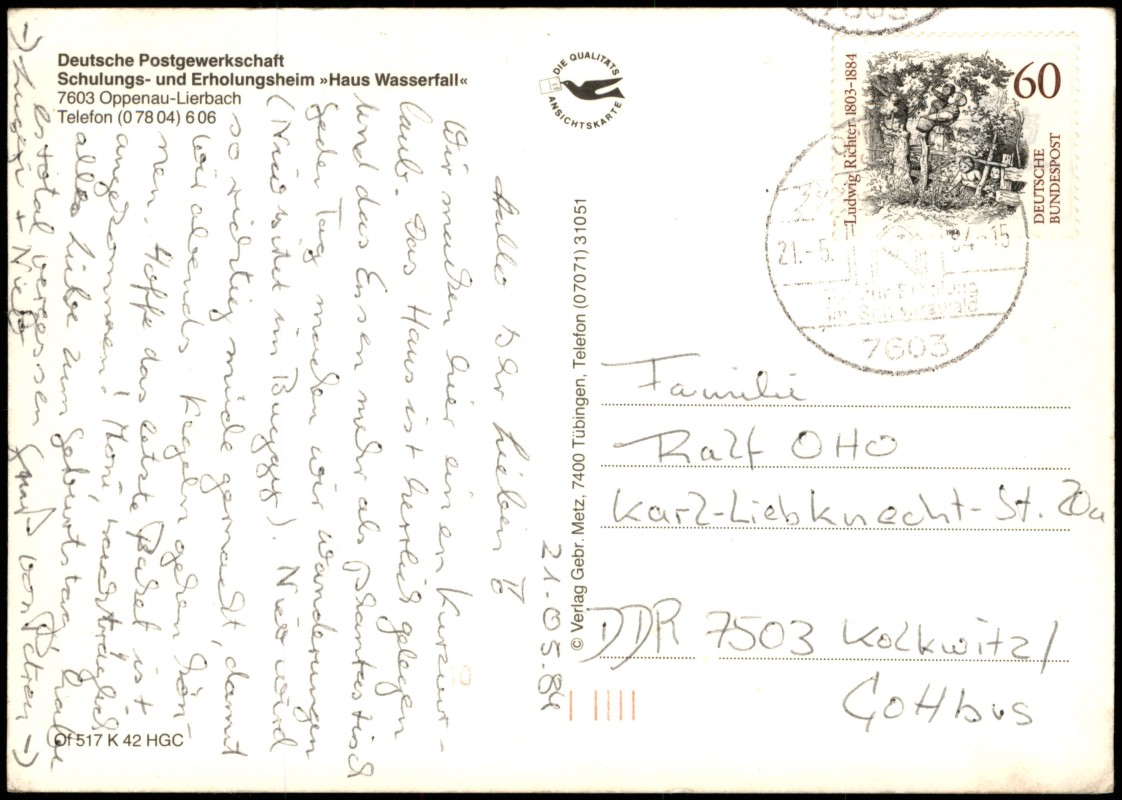 Deutsche Postgewerkschaft
Schulungs- und Erholungsheim »Haus Wasserfall«
7603 Oppenau-Lierbach
Telefon (0 78 04) 6 06
DIE QUALITÄTS
ANSICHTSKARTE
Ludwig Richter 1803-1884
60
DEUTSCHE
BUNDESPOST
1984
7603
21.-5.
84-15
zur Erholung
im Schwarzwald
7603
21.05.84
Hallo Ihr Lieben
Wir machen hier einen Kurzur-
laub. Das Haus ist herrlich gelegen
und das Essen mehr als phantastisch
Jeden Tag machen wir Wanderungen
(Nico sitzt im Buggy). Nico wird
so richtig müde gemacht, damit
wir abends Kegeln gehen kön-
nen. Hoffe das letzte Paket ist
angekommen! nachträglich
alles Liebe zum Geburtstag habe
es total vergessen Gruß von Petra →
→ Jürgen + Nico
© Verlag Gebr. Metz, 7400 Tübingen, Telefon (07071) 31051
Familie
Ralf OHO
Karl-Liebknecht-St. 20a
DDR 7503 Kolkwitz/
Cottbus
Of 517 K 42 HGC